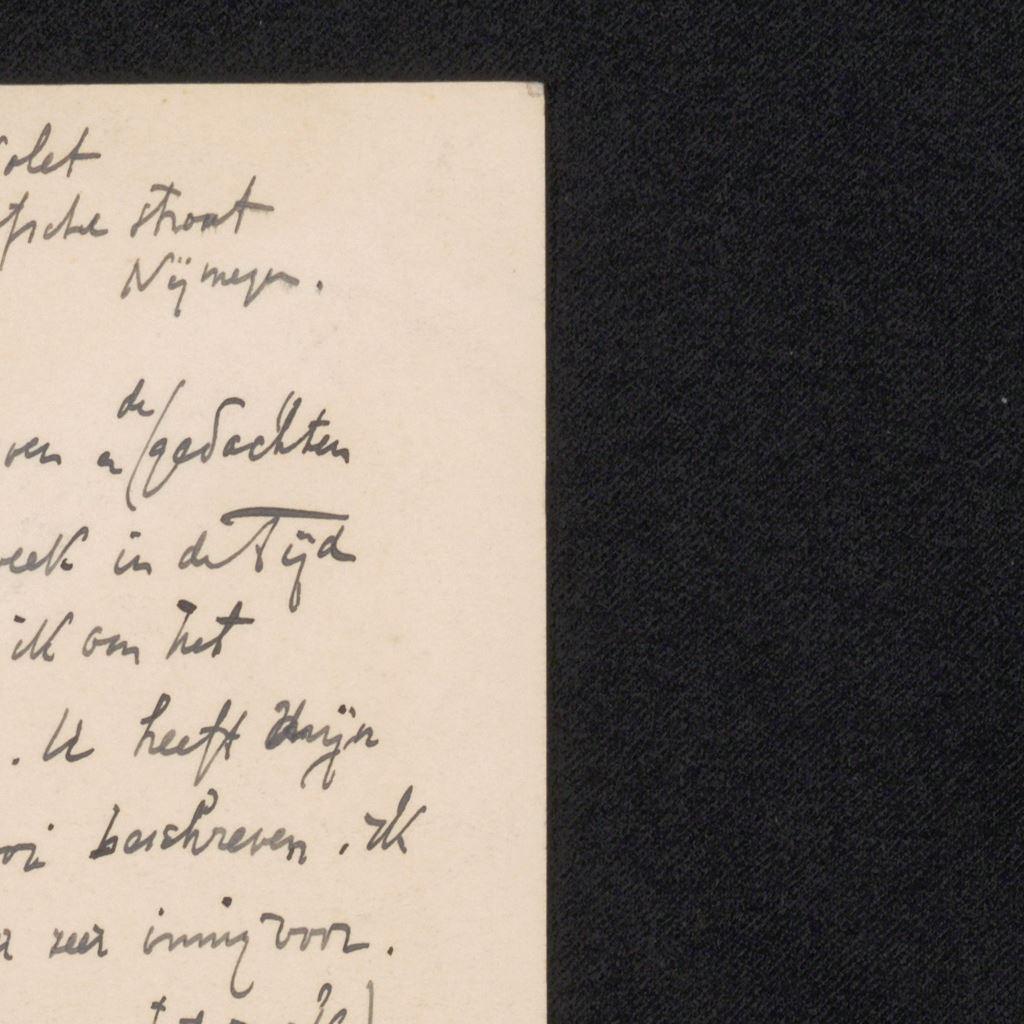 olet
sche straat
Nijmegen.
de
ven en gedachten
week in de Tijd
ik om het
. U heeft mijn
ooi beschreven. ik
zeer innig voor.